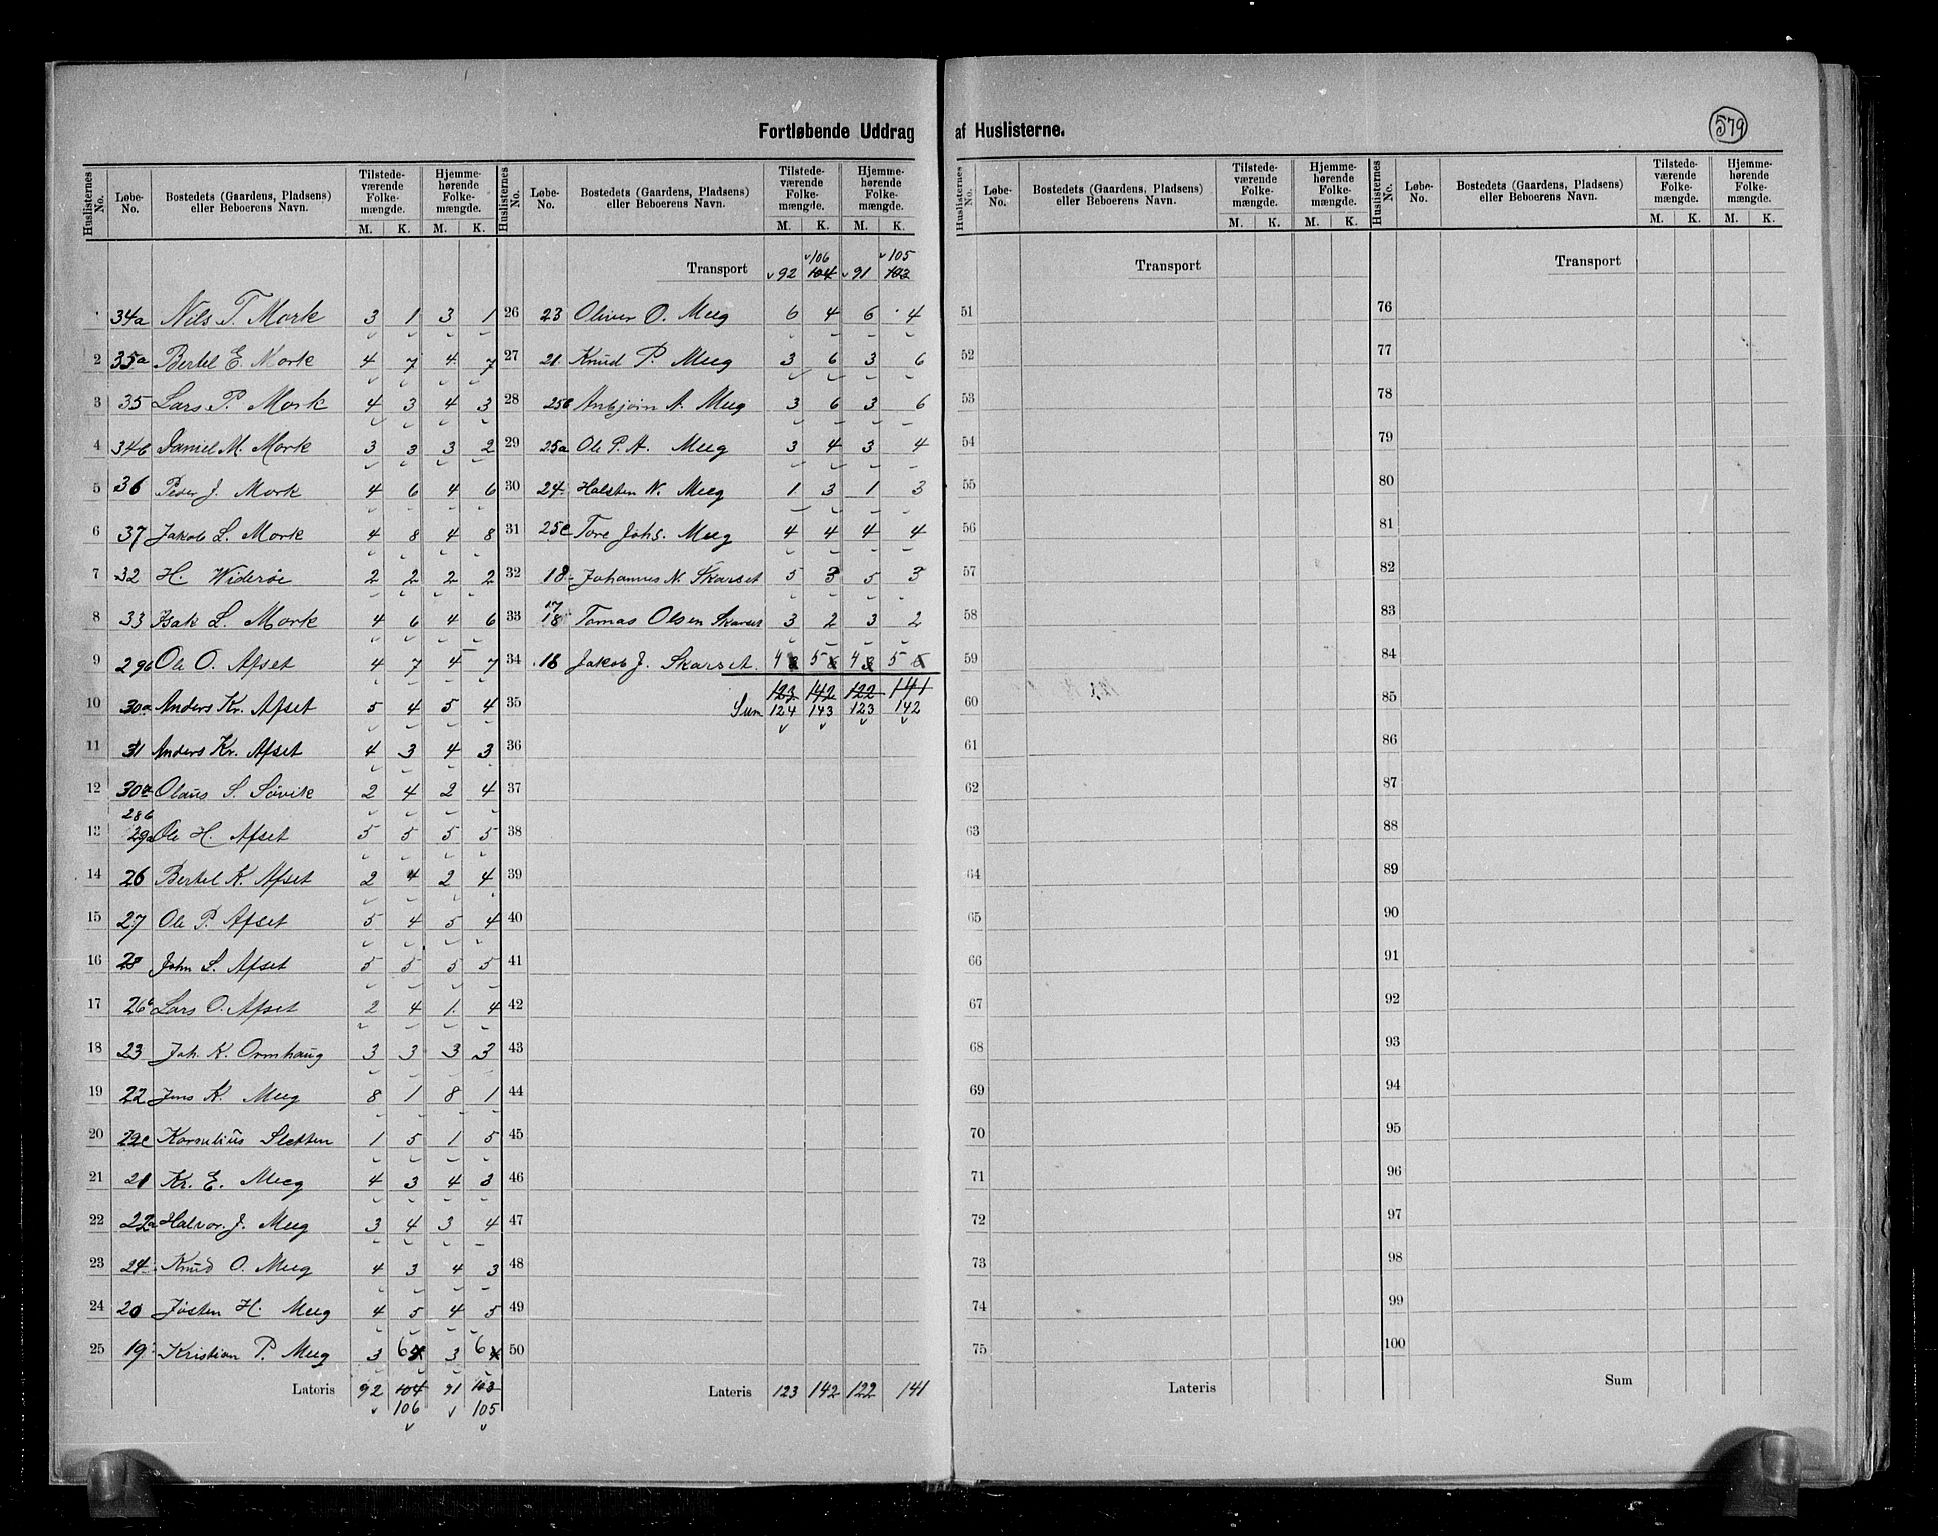 Fortløbende Uddrag af Huslisterne.
579
Huslisternes No. Løbe-No. Bostedets (Gaardens, Pladsens) eller Beboerens Navn. Tilstedeværende Folkemængde. M. K. Hjemmehørende Folkemængde. M. K.
34a Nils T. Mork 3 1 3 1
2 35a Bertel E. Mork 4 7 4 7
3 35 Lars P. Mork 4 3 4 3
4 34b Daniel M. Mork 3 3 3 2
5 36 Peder J. Mork 4 6 4 6
6 37 Jakob L. Mork 4 8 4 8
7 32 H. Widerøe 2 2 2 2
8 33 Isak L. Mork 4 6 4 6
9 29b Ole O. Afset 4 7 4 7
10 30a Anders Kr. Afset 5 4 5 4
11 31 Anders Kr. Afset 4 3 4 3
12 30a Olaus S. Søvik 2 4 2 4
28b
13 29a Ole H. Afset 5 5 5 5
14 26 Bertel K. Afset 2 4 2 4
15 27 Ole P. Afset 5 4 5 4
16 28 John L. Afset 5 5 5 5
17 26b Lars O. Afset 2 4 1 4
18 23 Joh. K. Ormhaug 3 3 3 3
19 22 Jens K. Meeg 8 1 8 1
20 22c Kornelius Sletten 1 5 1 5
21 21 Kr. E. Meeg 4 3 4 3
22 22a Halvor J. Meeg 3 4 3 4
23 24 Knud O. Meeg 4 3 4 3
24 20 Josten H. Meeg 4 5 4 5
25 19 Kristian P. Meeg 3 6 4 3 6 4
Lateris 92 104 91 103
106 105
Huslisternes No. Løbe-No. Bostedets (Gaardens, Pladsens) eller Beboerens Navn. Tilstedeværende Folkemængde. M. K. Hjemmehørende Folkemængde. M. K.
106 105
Transport 92 104 91 103
26 23 Oliver O. Meeg 6 4 6 4
27 21 Knud P. Meeg 3 6 3 6
28 25b Anbjørn A. Meeg 3 6 3 6
29 25a Ole P. A. Meeg 3 4 3 4
30 24 Halsten N. Meeg 1 3 1 3
31 25c Tore Johs. Meeg 4 4 4 4
32 18 Johannes N. Skarset 5 3 5 3
17
33 18 Tomas Olsen Skarset 3 2 3 2
34 18 Jakob J. Skarset 4 5 4 5
35 123 142 122 141
Sum 124 143 123 142
36
37
38
39
40
41
42
43
44
45
46
47
48
49
50
Lateris 123 142 122 141
Huslisternes No. Løbe-No. Bostedets (Gaardens, Pladsens) eller Beboerens Navn. Tilstedeværende Folkemængde. M. K. Hjemmehørende Folkemængde. M. K.
Transport
51
52
53
54
55
56
57
58
59
60
61
62
63
64
65
66
67
68
69
70
71
72
73
74
75
Lateris
Huslisternes No. Løbe-No. Bostedets (Gaardens, Pladsens) eller Beboerens Navn. Tilstedeværende Folkemængde. M. K. Hjemmehørende Folkemængde. M. K.
Transport
76
77
78
79
80
81
82
83
84
85
86
87
88
89
90
91
92
93
94
95
96
97
98
99
100
Sum